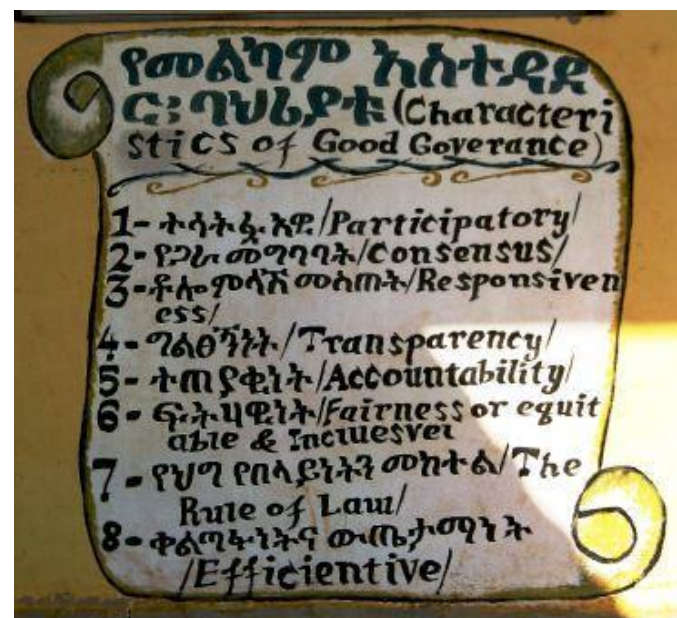 የመልካም አስተዳደ
ር፡ ባህሪያቱ (Characteri
stics of Good Goverance)
1- ተሳትፏአዊ /Participatory/
2- የጋራ መግባባት/Consensus/
3- ቶሎ ምላሽ መስጠት/Responsiven
ess/
4- ግልፀኝነት/Transparency/
5- ተጠያቂነት/Accountability/
6- ፍትሃዊነት/Fairness or equit
able & Incluesvei
7- የህግ የበላይነትን መከተል/The
Rule of Law/
8- ቀልጣፋነትና ውጤታማነት
/Efficientive/